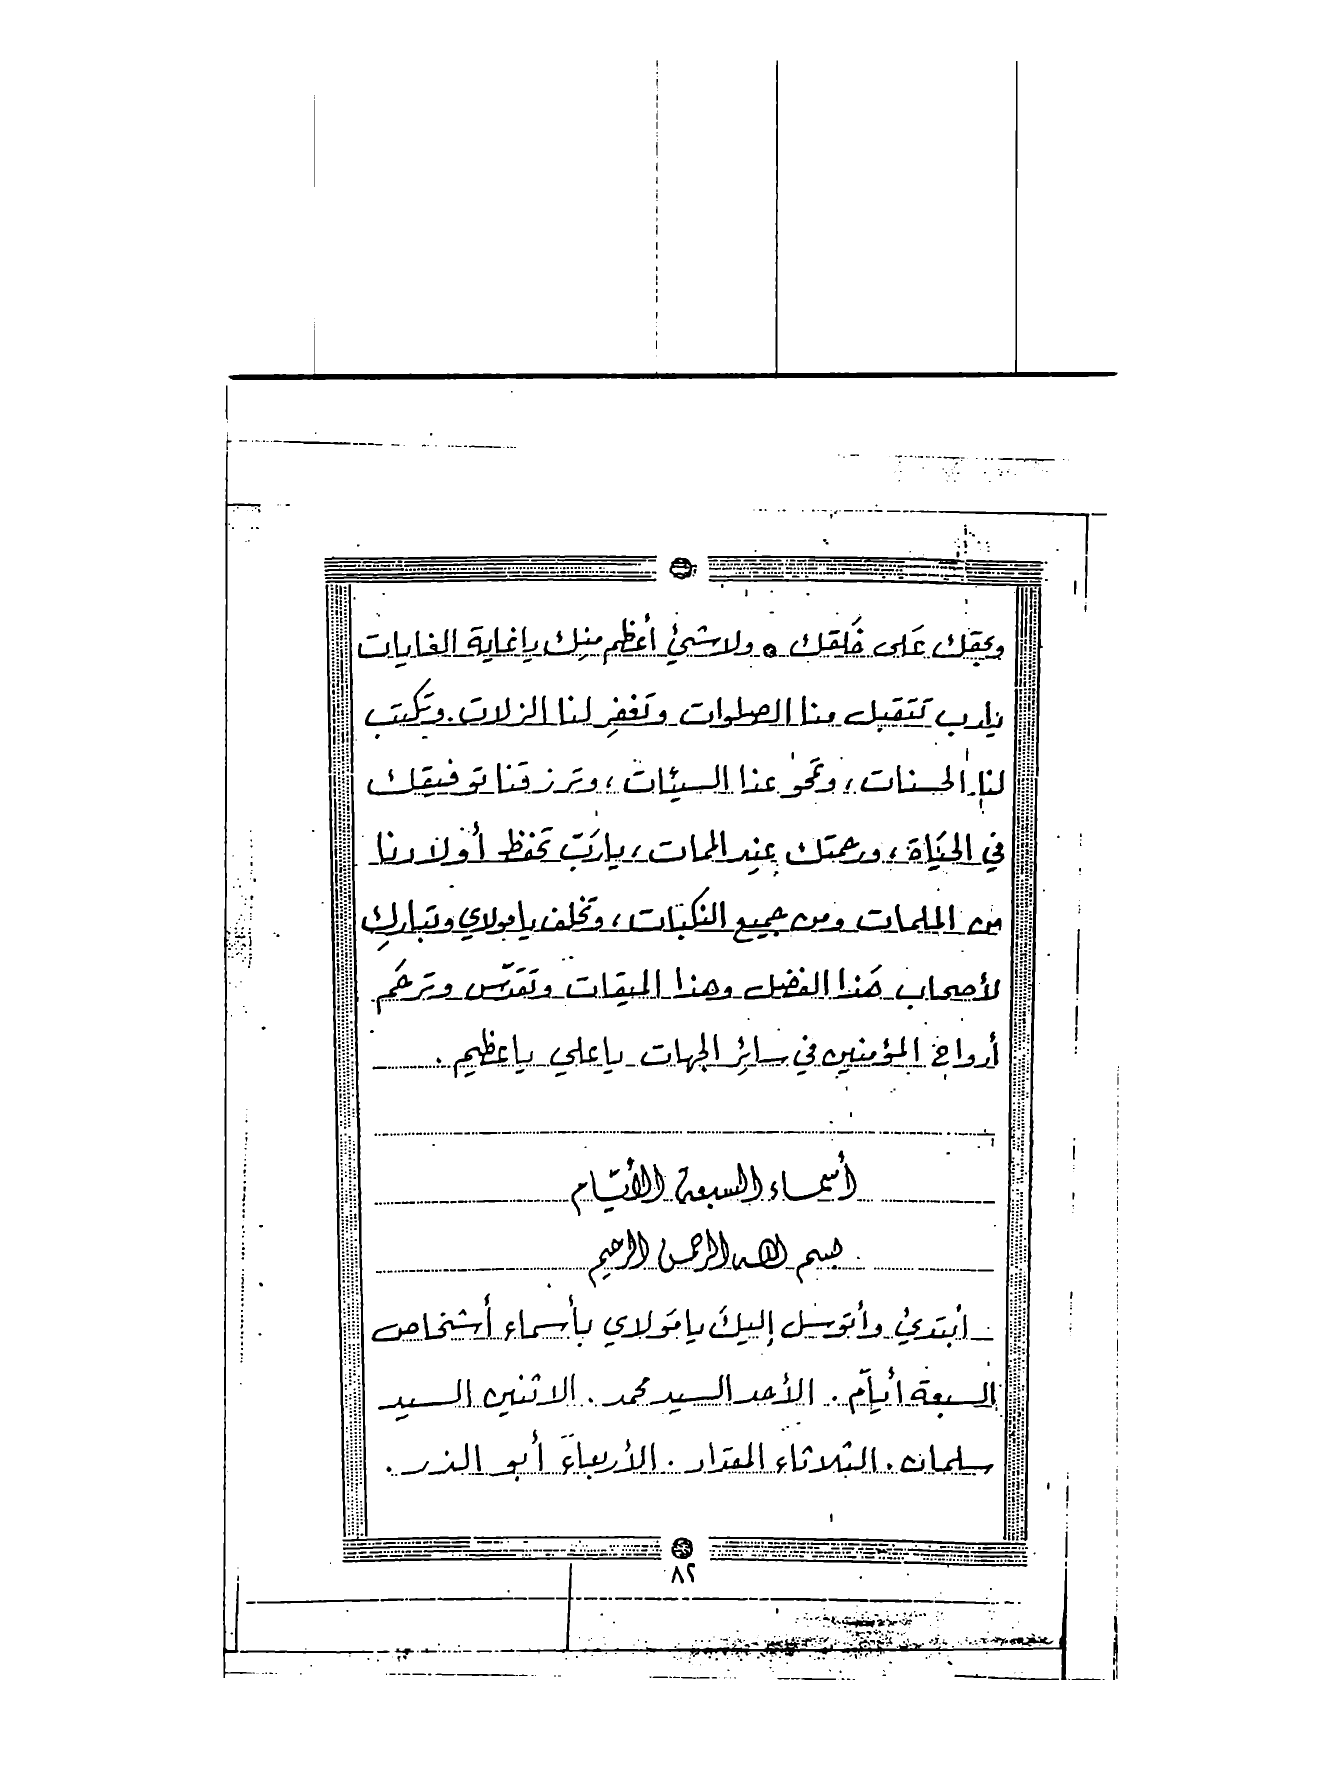 وبحقك عَلى خَلقك ٥ ولاشئ أعظم منك ياغاية الغايات
يارب تتقبل منا الصلوات وتغفر لنا الزلات . وتكتب
لنا الحسنات ، وتمحو عنا السيئات ، وترزقنا توفيقك
في الحيَاة ، ورحمتك عند الممات ، يارَبّ تحفظ أولادنا
من الملمات ومن جميع النكبات ، وتخلف يامولاي وتبارك
لأصحاب هَذا الفضل وهذا الميقات وتقدّس وترحَم
أرواح المؤمنين في سائر الجهات ياعلي ياعظيم .
أسماء السبعة الأيّام
بسم الله الرحمن الرحيم
أبتدئ وأتوسل إليكَ يامَولاي بأسماء أشخاص
السبعة أيّام . الأحد السيد محمد . الاثنين السيد
سلمان . الثلاثاء المقداد . الأربعاء أبو الذر .
٨٢